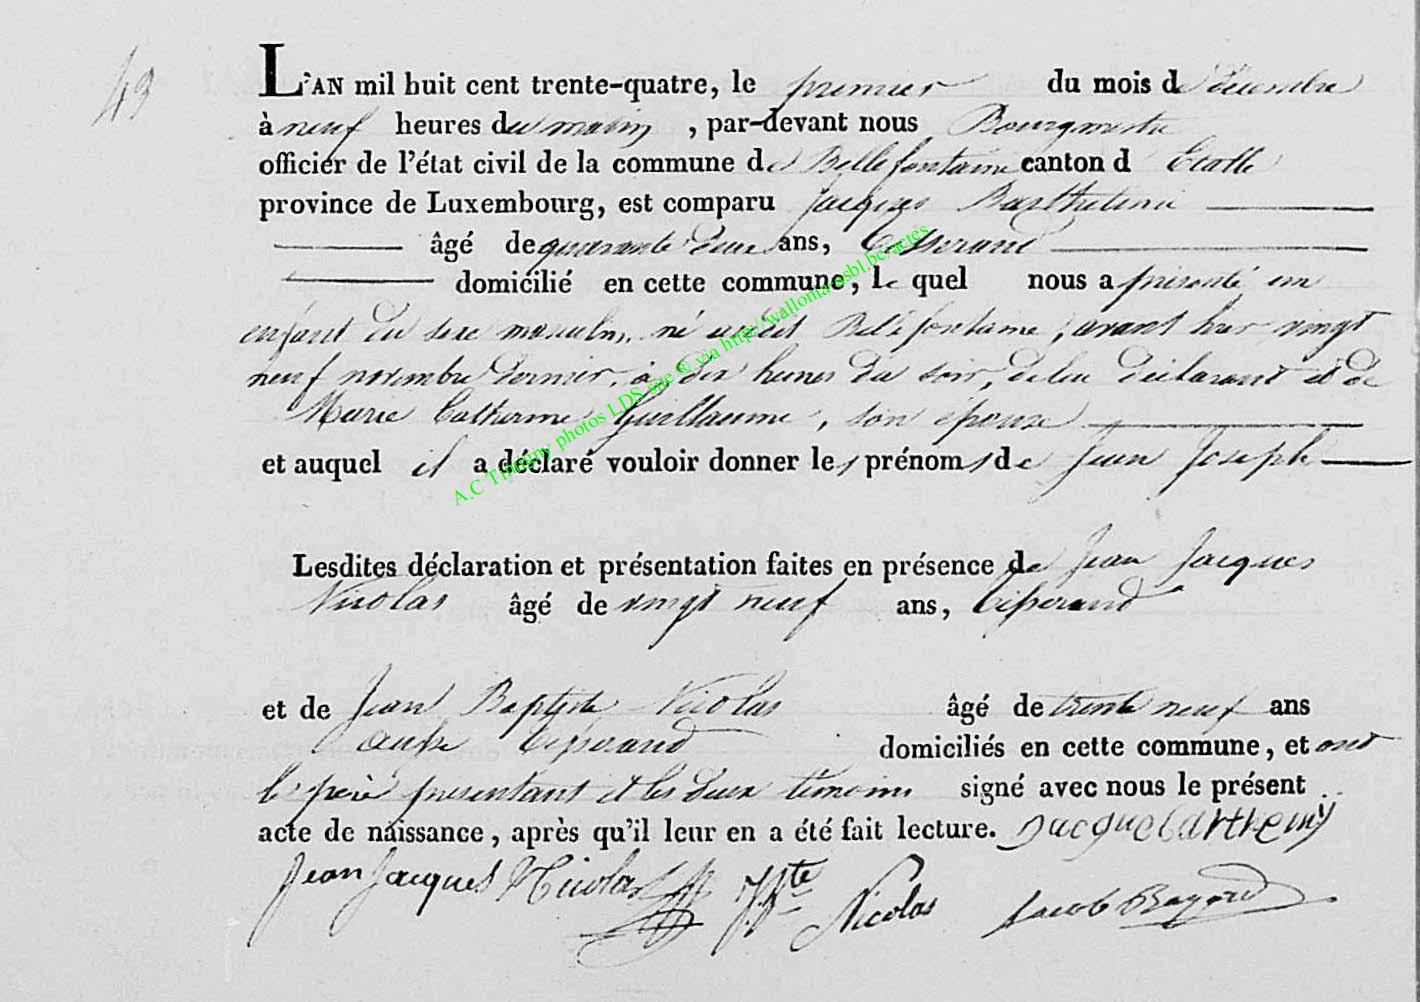 49
L'AN mil huit cent trente-quatre, le premier du mois de Décembre
à neuf heures du matin, par-devant nous Bourgmestre
officier de l'état civil de la commune de Bellefontaine canton d' Etalle
province de Luxembourg, est comparu Jacques Barthelemi
âgé de quarante deux ans, Tisserand
domicilié en cette commune, le quel nous a présenté un
enfant du sexe masculin, né audit Bellefontaine, avant hier vingt
neuf novembre dernier, à dix heures du soir, de lui déclarant et de
Marie Catherine Guillaume, son épouse
et auquel il a déclaré vouloir donner les prénoms de Jean Joseph
Lesdites déclaration et présentation faites en présence de Jean Jacques
Nicolas âgé de vingt neuf ans, Tisserand
et de Jean Baptiste Nicolas âgé de trente neuf ans
autre Tisserand domiciliés en cette commune, et ont
le père présentant et les deux témoins signé avec nous le présent
acte de naissance, après qu'il leur en a été fait lecture. Jacque barthemy
Jean Jacques Nicolas J. Bte Nicolas Jacob Bayard
A.C Tintigny photos LDS site © via http://wallonia-asbl.be/actes